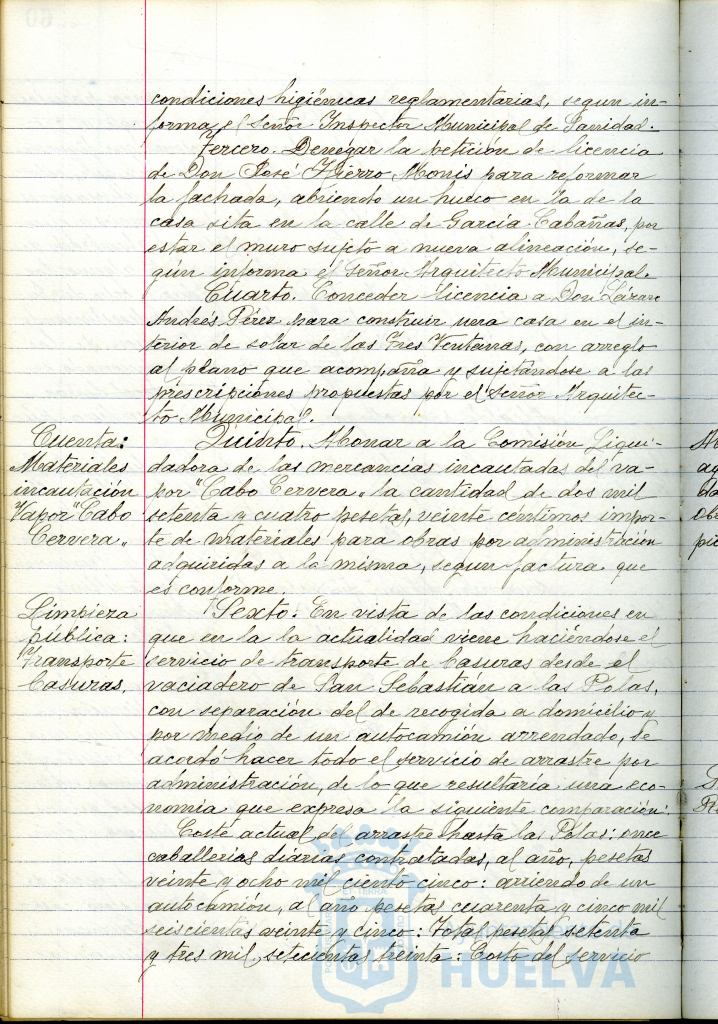 condiciones higiénicas reglamentarias, segun in-
forma el señor Inspector Municipal de Sanidad.
Tercero. Denegar la petición de licencia
de Don José Hierro Monis para reformar
la fachada, abriendo un hueco en la de la
casa sita en la calle de García Cabañas, por
estar el muro sujeto a nueva alineación, se-
gún informa el señor Arquitecto Municipal.
Cuarto. Conceder licencia a Don Lázaro
Andrés Pérez para construir una casa en el in-
terior de solar de las Tres Ventanas, con arreglo
al plano que acompaña y sujetándose a las
prescripciones propuestas por el señor Arquitec-
to Municipal.
Cuenta:
Materiales
incautación
Vapor "Cabo
Cervera"
Quinto. Abonar a la Comisión Liqui-
dadora de las mercancías incautadas del va-
por "Cabo Cervera" la cantidad de dos mil
setenta y cuatro pesetas, veinte céntimos impor-
te de materiales para obras por administración
adquiridas a la misma, segun factura que
es conforme.
Limpieza
pública:
Transporte
basuras.
Sexto: En vista de las condiciones en
que en la la actualidad viene haciéndose el
servicio de transporte de basuras desde el
vaciadero de San Sebastián a las Polas,
con separación del de recogida a domicilio y
por medio de un autocamión arrendado, se
acordó hacer todo el servicio de arrastre por
administración, de lo que resultaría una eco-
nomia que expresa la siguiente comparación:
Coste actual del arrastre hasta las Polas: once
caballerias diarias contratadas, al año, pesetas
veinte y ocho mil ciento cinco: arriendo de un
autocamión, al año pesetas cuarenta y cinco mil
seiscientas veinte y cinco: Total pesetas setenta
y tres mil setecientas treinta: Costo del servicio
HUELVA